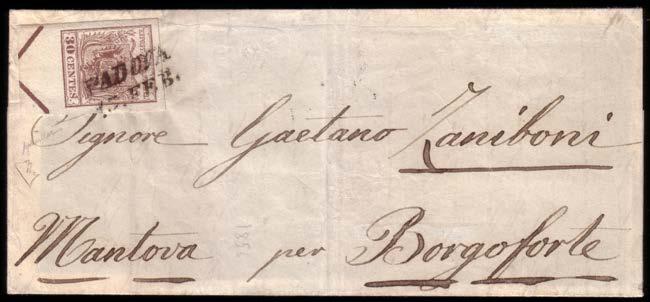 30 CENTES.
PADOVA
FEB.
Signore Gaetano Zaniboni
Mantova per Borgoforte
185